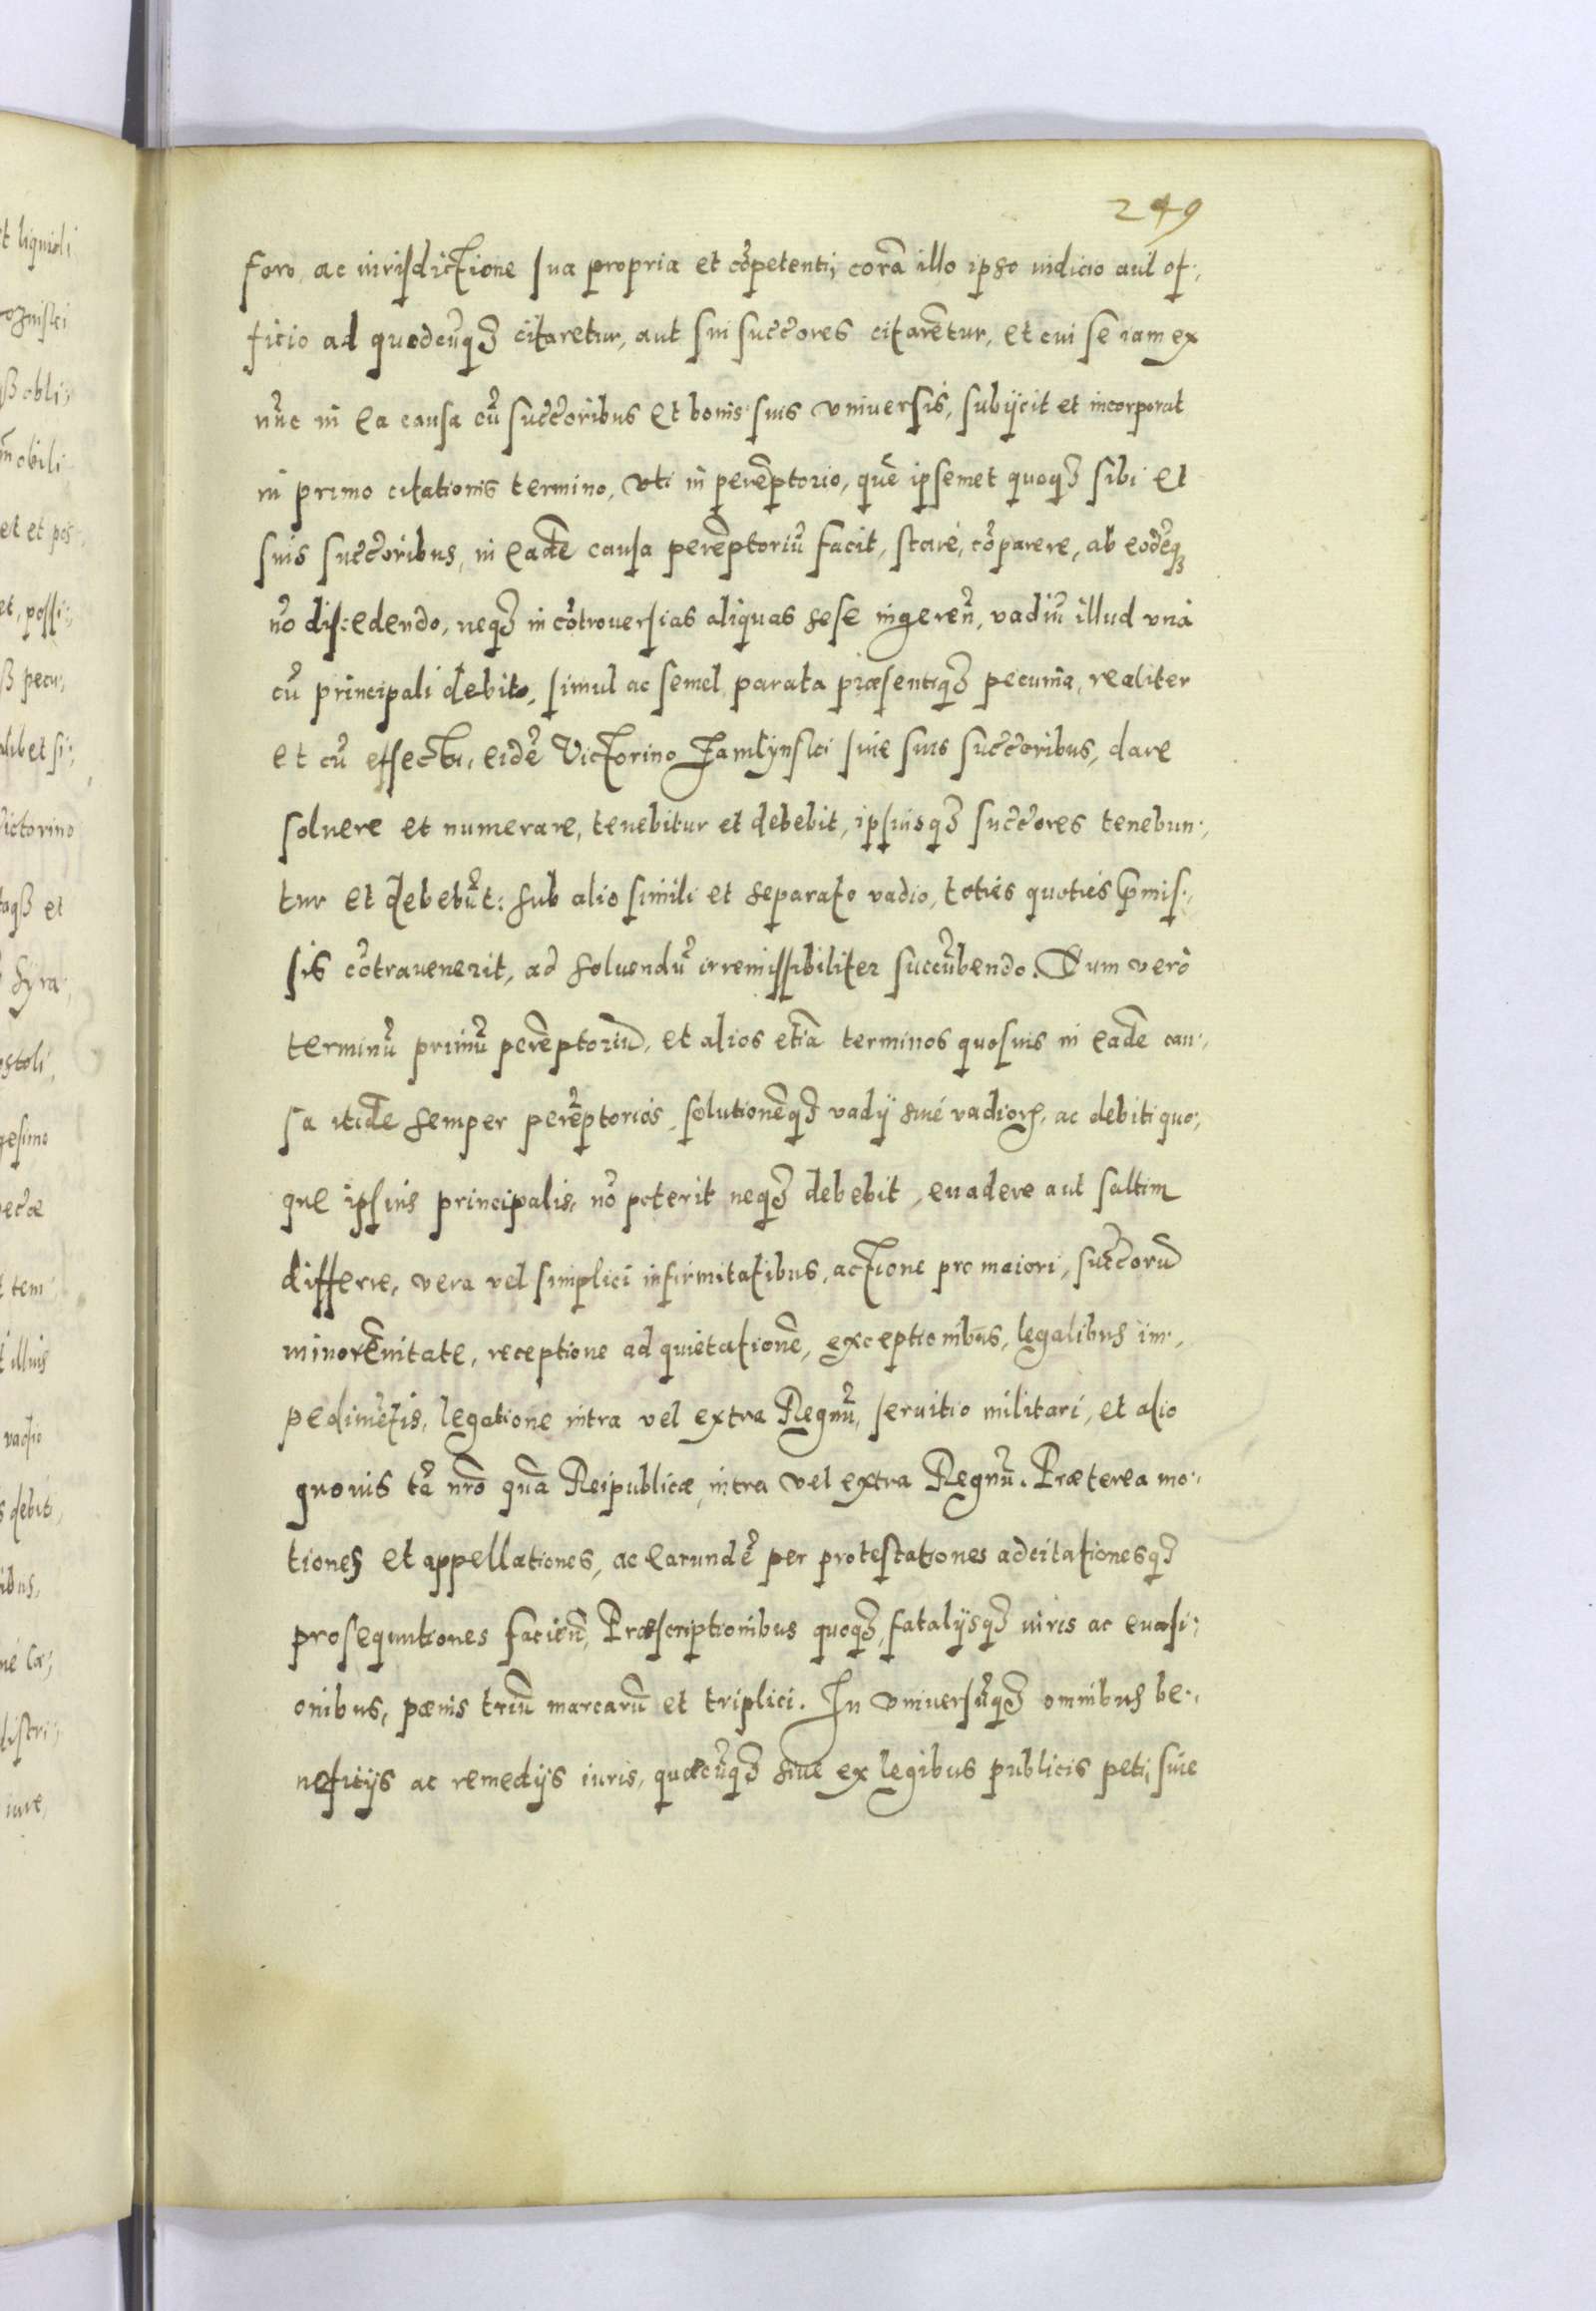 249
foro, ac iurisdictione sua propria et cõpetenti, corã illo ipso iudicio aut of:,
ficio ad quodcũqʒ citaretur, aut sui succ̃ores citarẽtur, et cui se iam ex
nũc in ea causa cũ succ̃oribus et bonis suis vniuersis, subijcit et incorporat
in primo citationis termino, vti in perẽptorio, quẽ ipsemet quoqʒ sibi et
suis succ̃oribus, in eadẽ causa perẽptoriũ facit, stare, cõparere, ab eodẽqʒ
nõ discedendo, neqʒ in cõtrouersias aliquas sese ingereñ, vadiũ illud vnà
cũ principali debito, simul ac semel, parata præsentiqʒ pecunia, realiter
et cũ effectu, eidẽ Victorino Jamłynski siue suis succ̃oribus, dare
soluere et numerare, tenebitur et debebit, ipsiusqʒ succ̃ores tenebun:,
tur et debebũt: sub alio simili et separato vadio, toties quoties p̃mis:,
sis cõtrauenerit, ad soluendũ irremissibiliter succũbendo. Dum verò
terminũ primũ perẽptoriũ, et alios etiã terminos quosuis in eadẽ cau:,
sa itidẽ semper perẽptorios, solutionẽqʒ vadij siué vadiorꝝ, ac debiti quo:,
que ipsius principalis, nõ poterit neqʒ debebit, euadere aut saltim
differre, vera vel simplici infirmitatibus, actione pro maiori, succ̃orũ
minorẽnitate, receptione ad quietationẽ, exceptionibus, legalibus im:,
pedimẽtis, legatione intra vel extra Regnũ, seruitio militari, et alio
quouis tã nr̃o quã Reipublicæ, intra vel extra Regnũ. Præterea mo:,
tiones et appellationes, ac earundẽ per protestationes adcitationesqʒ
prosequutiones facieñ, Præscriptionibus quoqʒ, fatalijsqʒ iuris ac euasi:,
onibus, pœnis triũ marcarũ et triplici. In vniuersũqʒ omnibus be:,
neficijs ac remedijs iuris, quæcũqʒ siue ex legibus publicis peti, siue